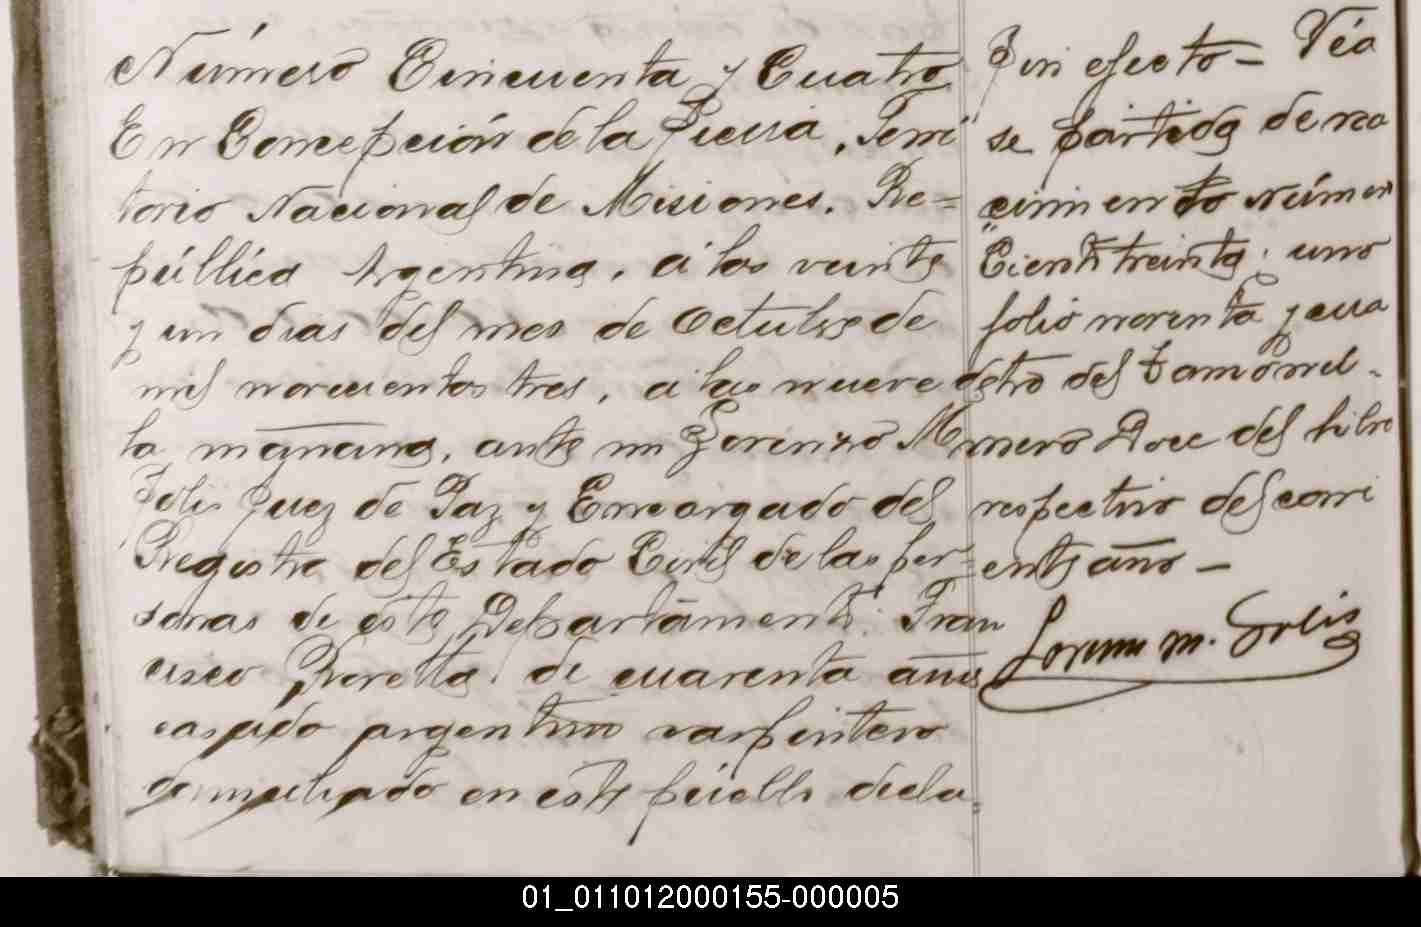 Número Cincuenta y Cuatro
En Concepción de la Sierra, Terri
torio Nacional de Misiones, Re=
pública Argentina, á las veinte
y un dias del mes de Octubre de
mil novecientos tres, á las nueve de
la mañana, ante mi Lorenzo M
Solis Juez de Paz y Encargado del
Registro del Estado Civil de las per=
sonas de este Departamento. Fran
cisco de cuarenta años
casado argentino carpintero
domiciliado en este pueblo decla
Sin efecto — Véa
se partida de na
cimiento número
Ciento treinta, uno
folio noventa y cua
tro del tomo
número Doce del libro
respectivo del corri
ente año —
Lorenzo M. Solis
01_011012000155-000005